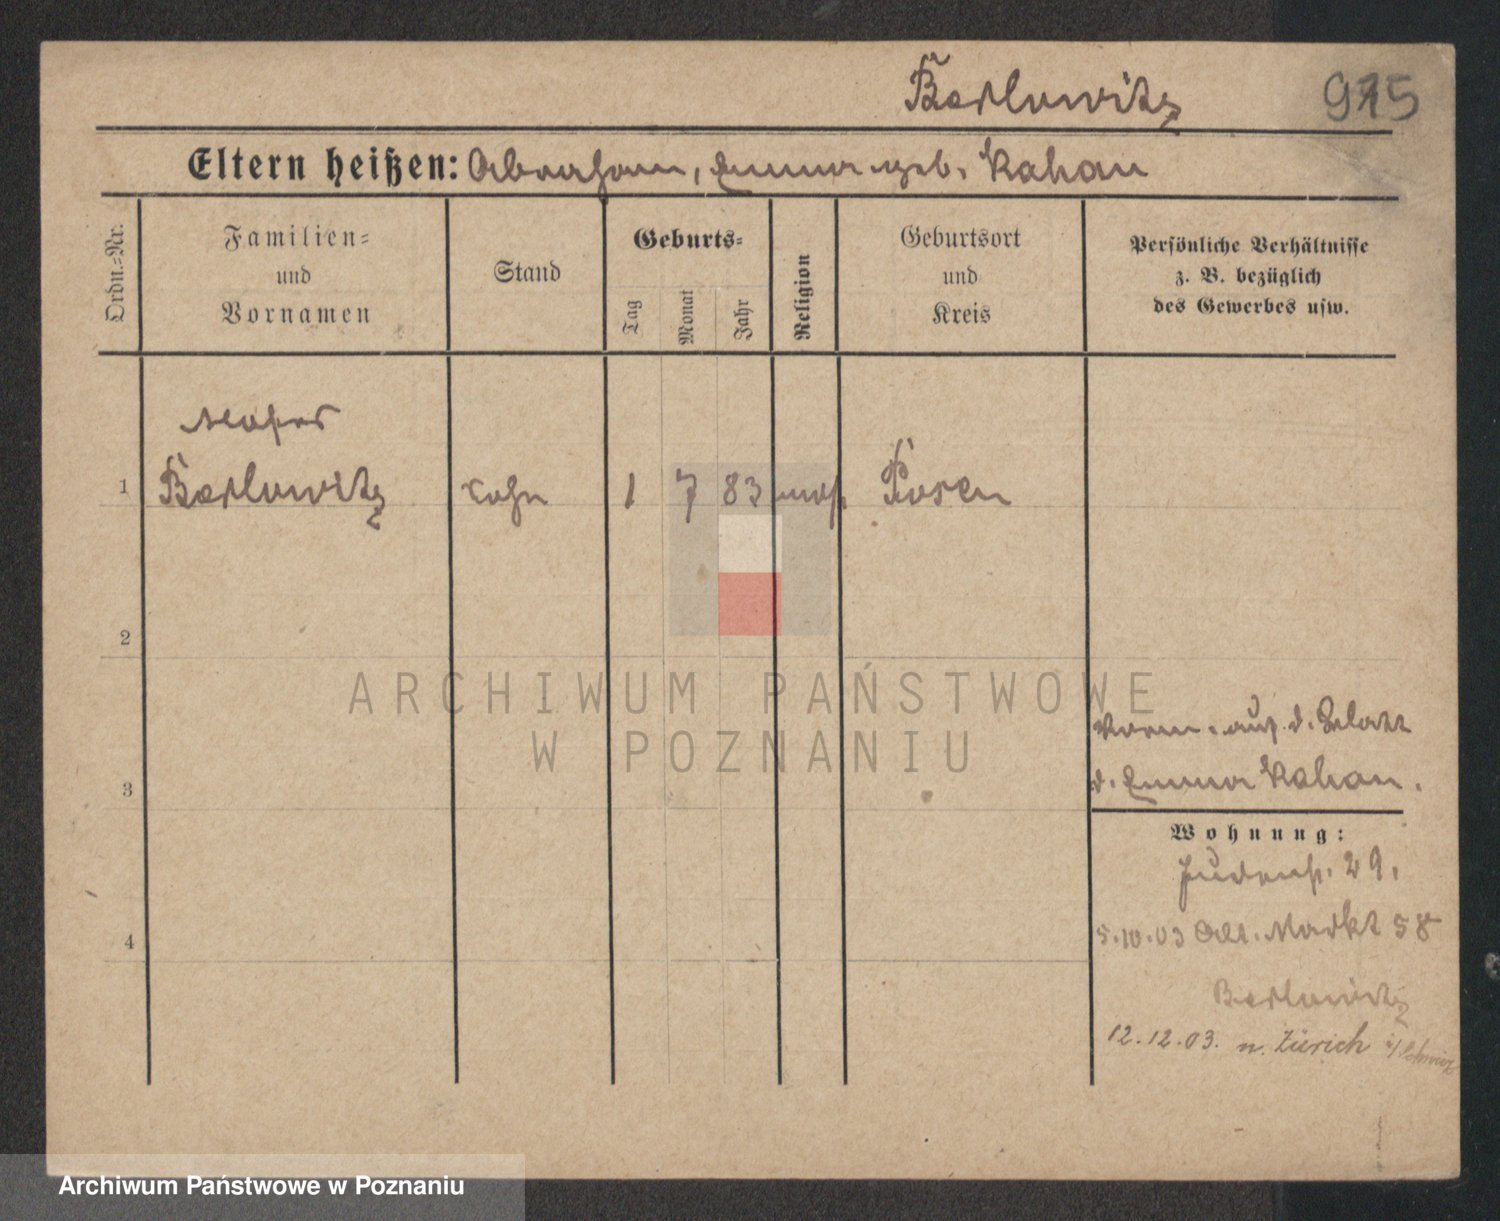 Berlowitz 915
Eltern heißen: Abraham, Emma geb. Kahan
Ordn.-Nr.
Familien-
und
Vornamen
Stand
Geburts-
Tag
Monat
Jahr
Religion
Geburtsort
und
Kreis
Persönliche Verhältnisse
z. B. bezüglich
des Gewerbes usw.
1
Berlowitz Sohn 1 7 83 mos. Posen
2
ARCHIWUM PAŃSTWOWE
W POZNANIU
3
Vorm. auf d. Blatt
d. Emma Kahan.
Wohnung:
Judenstr. 29.
4
5.10.03 Alt. Markt 58
Berlowitz
12.12.03. n. Zürich i/Schweiz
Archiwum Państwowe w Poznaniu